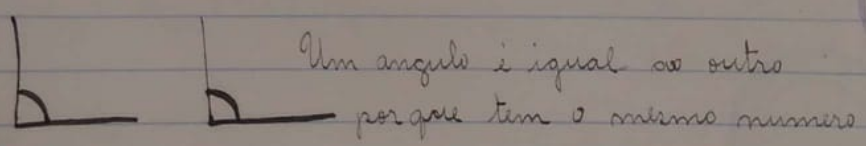 Um angulo é igual ao outro
porque tem o mesmo numero